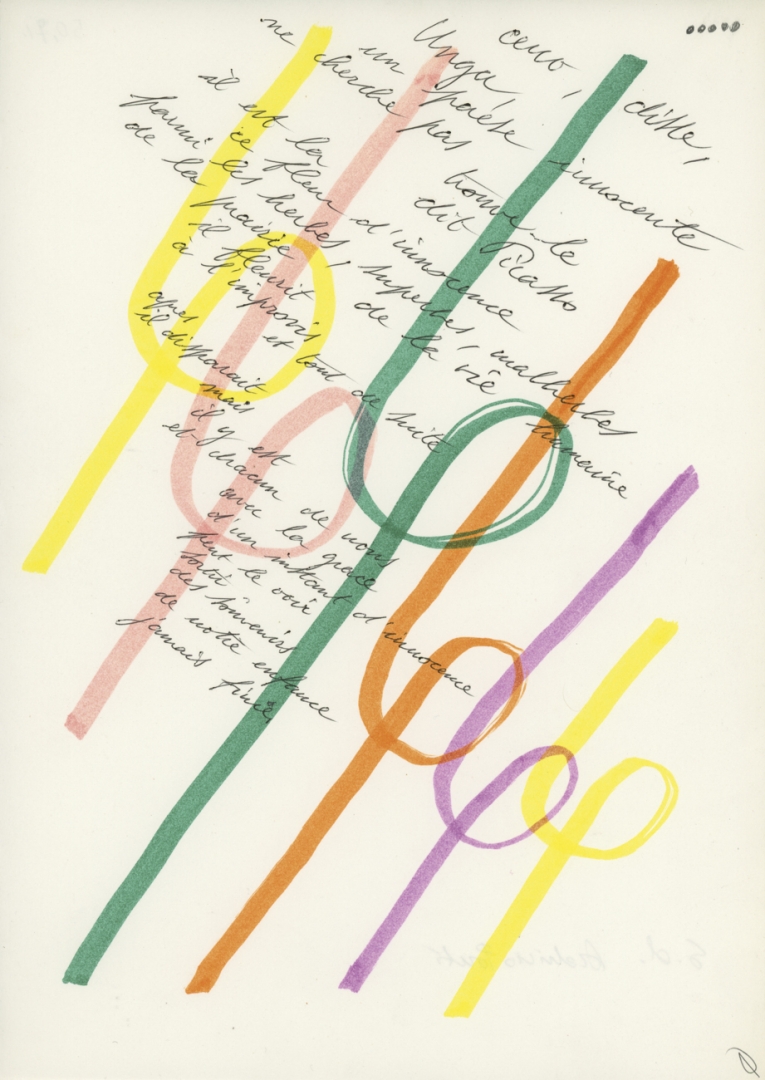 un innocente
ne cherche pas trouve le
dit Picasso
il est la
ce fleur d'innocence
parmi les herbes, superbes, malherbes
de la prairie de la vie humaine
il fleurit
à l'improvis et tout de suite
après
il disparait
mais
il y est
et chacun de nous
avec la grâce
d'un instant d'innocence
peut le voir
sortir
des souvenirs
de notre enfance
jamais finie